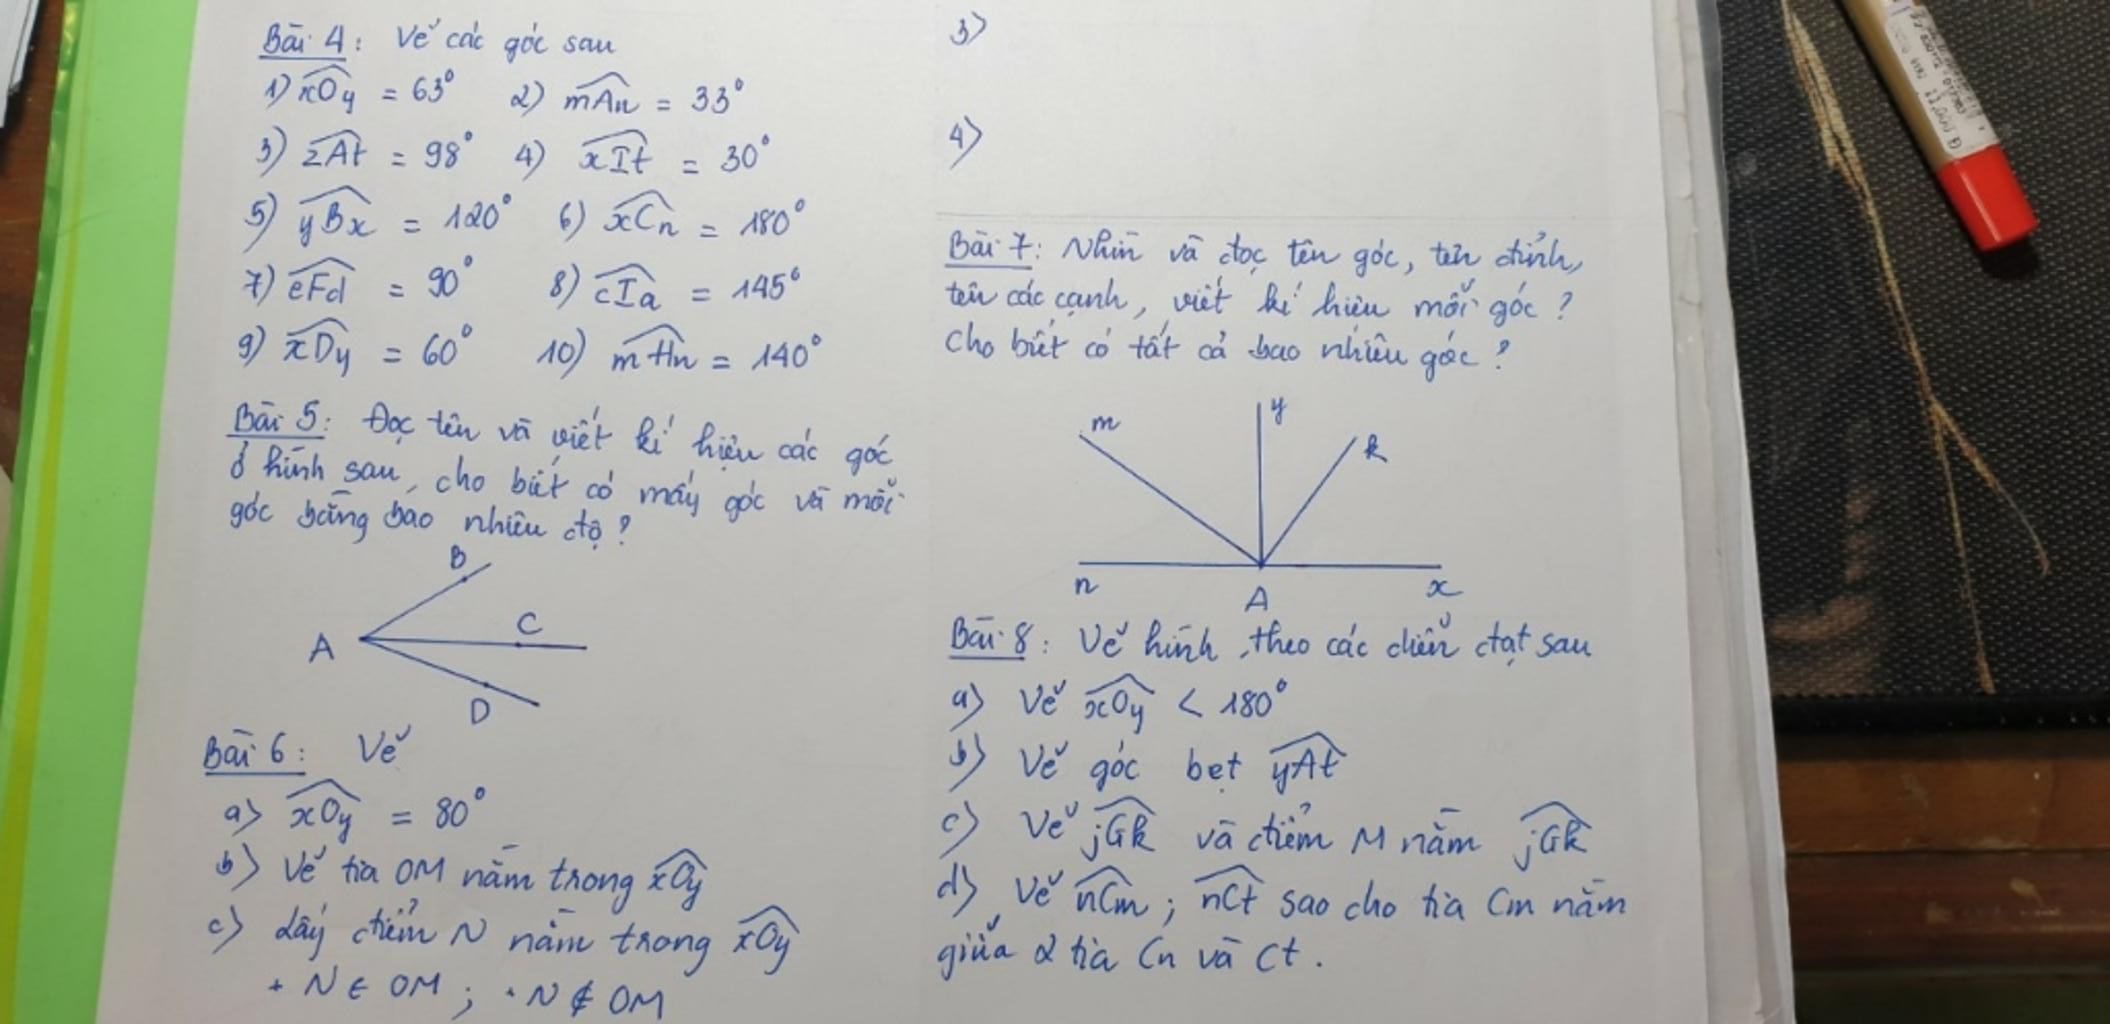 Bài 4: Vẽ các góc sau
1) xOy = 63° 2) mAn = 33°
3) zAt = 98° 4) xIt = 30°
5) yBx = 120° 6) xCn = 180°
7) eFd = 90° 8) cIa = 145°
9) xDy = 60° 10) mHn = 140°
Bài 5: Đọc tên và viết kí hiệu các góc
ở hình sau, cho biết có mấy góc và mỗi
góc bằng bao nhiêu độ?
B
C
A
D
Bài 6: Vẽ
a) xOy = 80°
b) Vẽ tia OM nằm trong xOy
c) Lấy điểm N nằm trong xOy
+ N ∈ OM; + N ∉ OM
3)
4)
Bài 7: Nhìn và đọc tên góc, tên đỉnh,
tên các cạnh, viết kí hiệu mỗi góc?
Cho biết có tất cả bao nhiêu góc?
m y k
n A x
Bài 8: Vẽ hình theo các diễn đạt sau
a) Vẽ xOy < 180°
b) Vẽ góc bẹt yAt
c) Vẽ jGk và điểm M nằm jGk
d) Vẽ nCm; nCt sao cho tia Cm nằm
giữa 2 tia Cn và Ct.